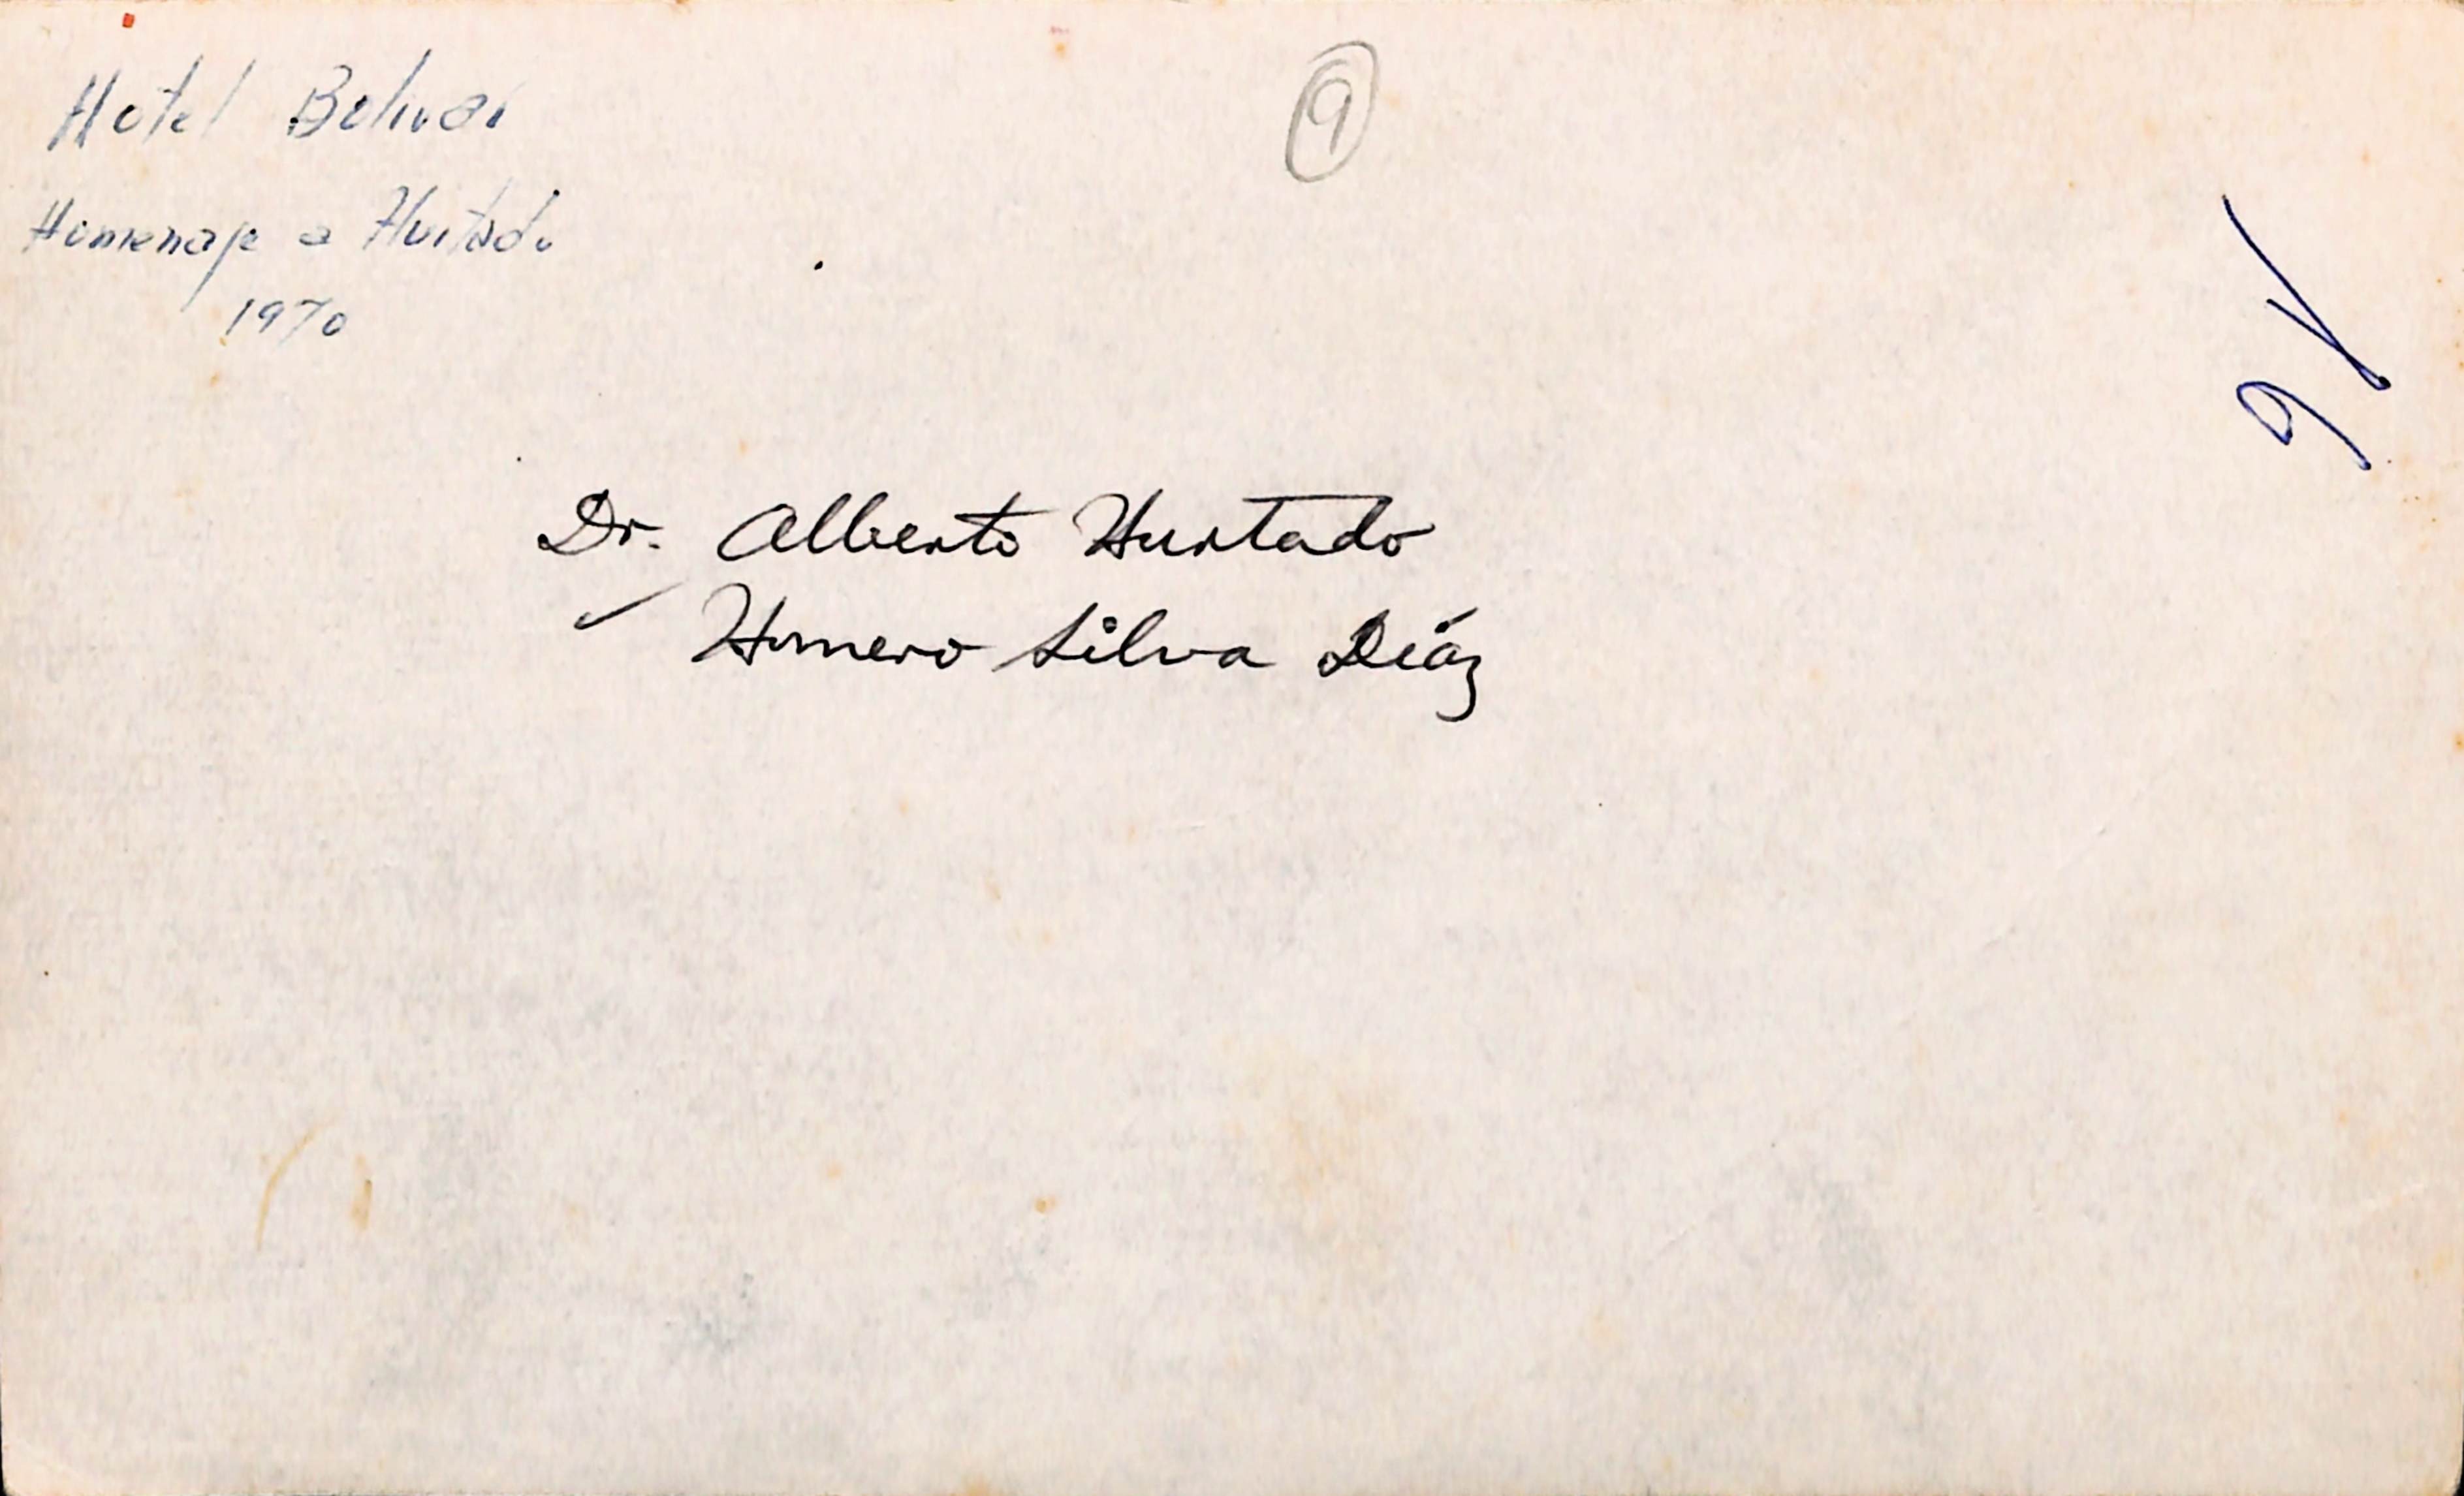 Hotel Bolivar
9
Homenaje a Hurtado
1970
Dr. Alberto Hurtado
✓ Homero Silva Díaz